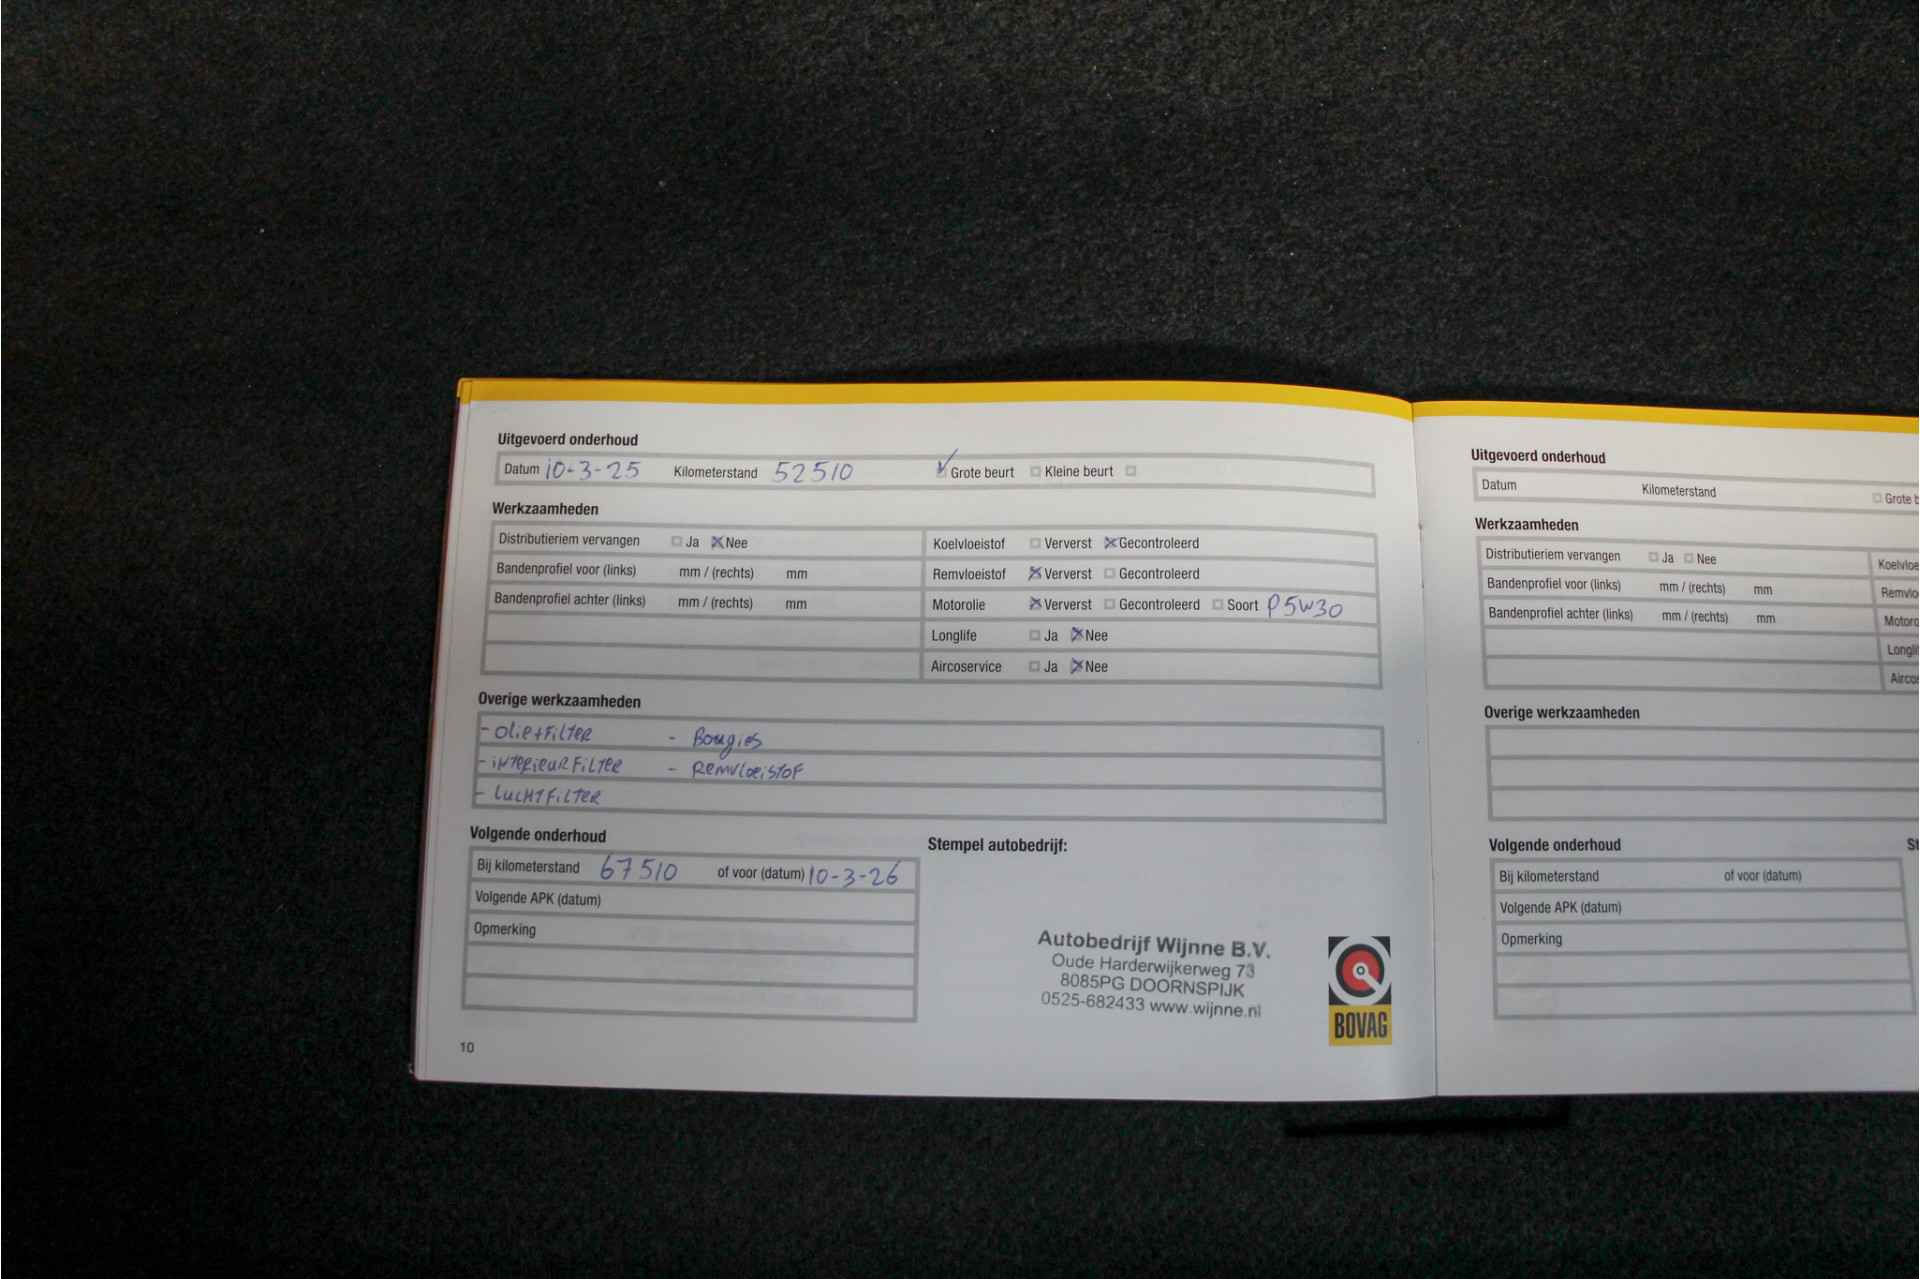 Uitgevoerd onderhoud
Datum 10-3-25 Kilometerstand 52510 Grote beurt Kleine beurt
Werkzaamheden
Distributieriem vervangen Ja Nee Koelvloeistof Ververst Gecontroleerd
Bandenprofiel voor (links) mm / (rechts) mm Remvloeistof Ververst Gecontroleerd
Bandenprofiel achter (links) mm / (rechts) mm Motorolie Ververst Gecontroleerd Soort P5W30
Longlife Ja Nee
Aircoservice Ja Nee
Overige werkzaamheden
- Olie+Filter - Bougies
- interieurfilter - Remvloeistof
- Luchtfilter
Volgende onderhoud
Bij kilometerstand 67510 of voor (datum) 10-3-26
Volgende APK (datum)
Opmerking
Stempel autobedrijf:
Autobedrijf Wijnne B.V.
Oude Harderwijkerweg 73
8085PG DOORNSPIJK
0525-682433 www.wijnne.nl
BOVAG
10
Uitgevoerd onderhoud
Datum Kilometerstand Grote b
Werkzaamheden
Distributieriem vervangen Ja Nee Koelvloe
Bandenprofiel voor (links) mm / (rechts) mm Remvlo
Bandenprofiel achter (links) mm / (rechts) mm Motoro
Longli
Aircos
Overige werkzaamheden
Volgende onderhoud St
Bij kilometerstand of voor (datum)
Volgende APK (datum)
Opmerking